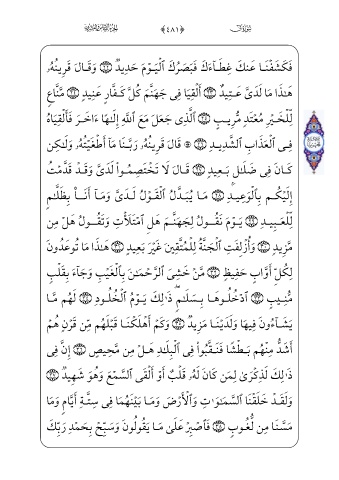 فَكَشَفْنَا عَنكَ غِطَآءَكَ فَبَصَرُكَ ٱلْيَوْمَ حَدِيدٌ ۝ وَقَالَ قَرِينُهُۥ
هَٰذَا مَا لَدَىَّ عَتِيدٌ ۝ أَلْقِيَا فِى جَهَنَّمَ كُلَّ كَفَّارٍ عَنِيدٍ ۝ مَّنَّاعٍ
لِّلْخَيْرِ مُعْتَدٍ مُّرِيبٍ ۝ ٱلَّذِى جَعَلَ مَعَ ٱللَّهِ إِلَٰهًا ءَاخَرَ فَأَلْقِيَاهُ
فِى ٱلْعَذَابِ ٱلشَّدِيدِ ۝ ۞ قَالَ قَرِينُهُۥ رَبَّنَا مَآ أَطْغَيْتُهُۥ وَلَٰكِن
كَانَ فِى ضَلَٰلٍۭ بَعِيدٍ ۝ قَالَ لَا تَخْتَصِمُوا۟ لَدَىَّ وَقَدْ قَدَّمْتُ
إِلَيْكُم بِٱلْوَعِيدِ ۝ مَا يُبَدَّلُ ٱلْقَوْلُ لَدَىَّ وَمَآ أَنَا۠ بِظَلَّٰمٍ
لِّلْعَبِيدِ ۝ يَوْمَ نَقُولُ لِجَهَنَّمَ هَلِ ٱمْتَلَأْتِ وَتَقُولُ هَلْ مِن
مَّزِيدٍ ۝ وَأُزْلِفَتِ ٱلْجَنَّةُ لِلْمُتَّقِينَ غَيْرَ بَعِيدٍ ۝ هَٰذَا مَا تُوعَدُونَ
لِكُلِّ أَوَّابٍ حَفِيظٍ ۝ مَّنْ خَشِىَ ٱلرَّحْمَٰنَ بِٱلْغَيْبِ وَجَآءَ بِقَلْبٍ
مُّنِيبٍ ۝ ٱدْخُلُوهَا بِسَلَٰمٍ ذَٰلِكَ يَوْمُ ٱلْخُلُودِ ۝ لَهُم مَّا
يَشَآءُونَ فِيهَا وَلَدَيْنَا مَزِيدٌ ۝ وَكَمْ أَهْلَكْنَا قَبْلَهُم مِّن قَرْنٍ هُمْ
أَشَدُّ مِنْهُم بَطْشًا فَنَقَّبُوا۟ فِى ٱلْبِلَٰدِ هَلْ مِن مَّحِيصٍ ۝ إِنَّ فِى
ذَٰلِكَ لَذِكْرَىٰ لِمَن كَانَ لَهُۥ قَلْبٌ أَوْ أَلْقَى ٱلسَّمْعَ وَهُوَ شَهِيدٌ ۝
وَلَقَدْ خَلَقْنَا ٱلسَّمَٰوَٰتِ وَٱلْأَرْضَ وَمَا بَيْنَهُمَا فِى سِتَّةِ أَيَّامٍ وَمَا
مَسَّنَا مِن لُّغُوبٍ ۝ فَٱصْبِرْ عَلَىٰ مَا يَقُولُونَ وَسَبِّحْ بِحَمْدِ رَبِّكَ